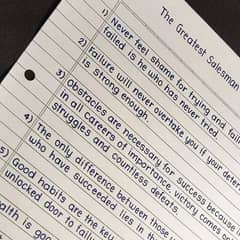 The Greatest Salesman
1) Never feel shame for trying and fail
failed is he who has never tried.
2) Failure will never overtake you if your deter
is strong enough.
3) Obstacles are necessary for success because
in all careers of importance, victory comes o
struggles and countless defeats.
4) The only difference between those
who have succeeded lies in th
5) Good habits are the key
unlocked door to fail
aith is good